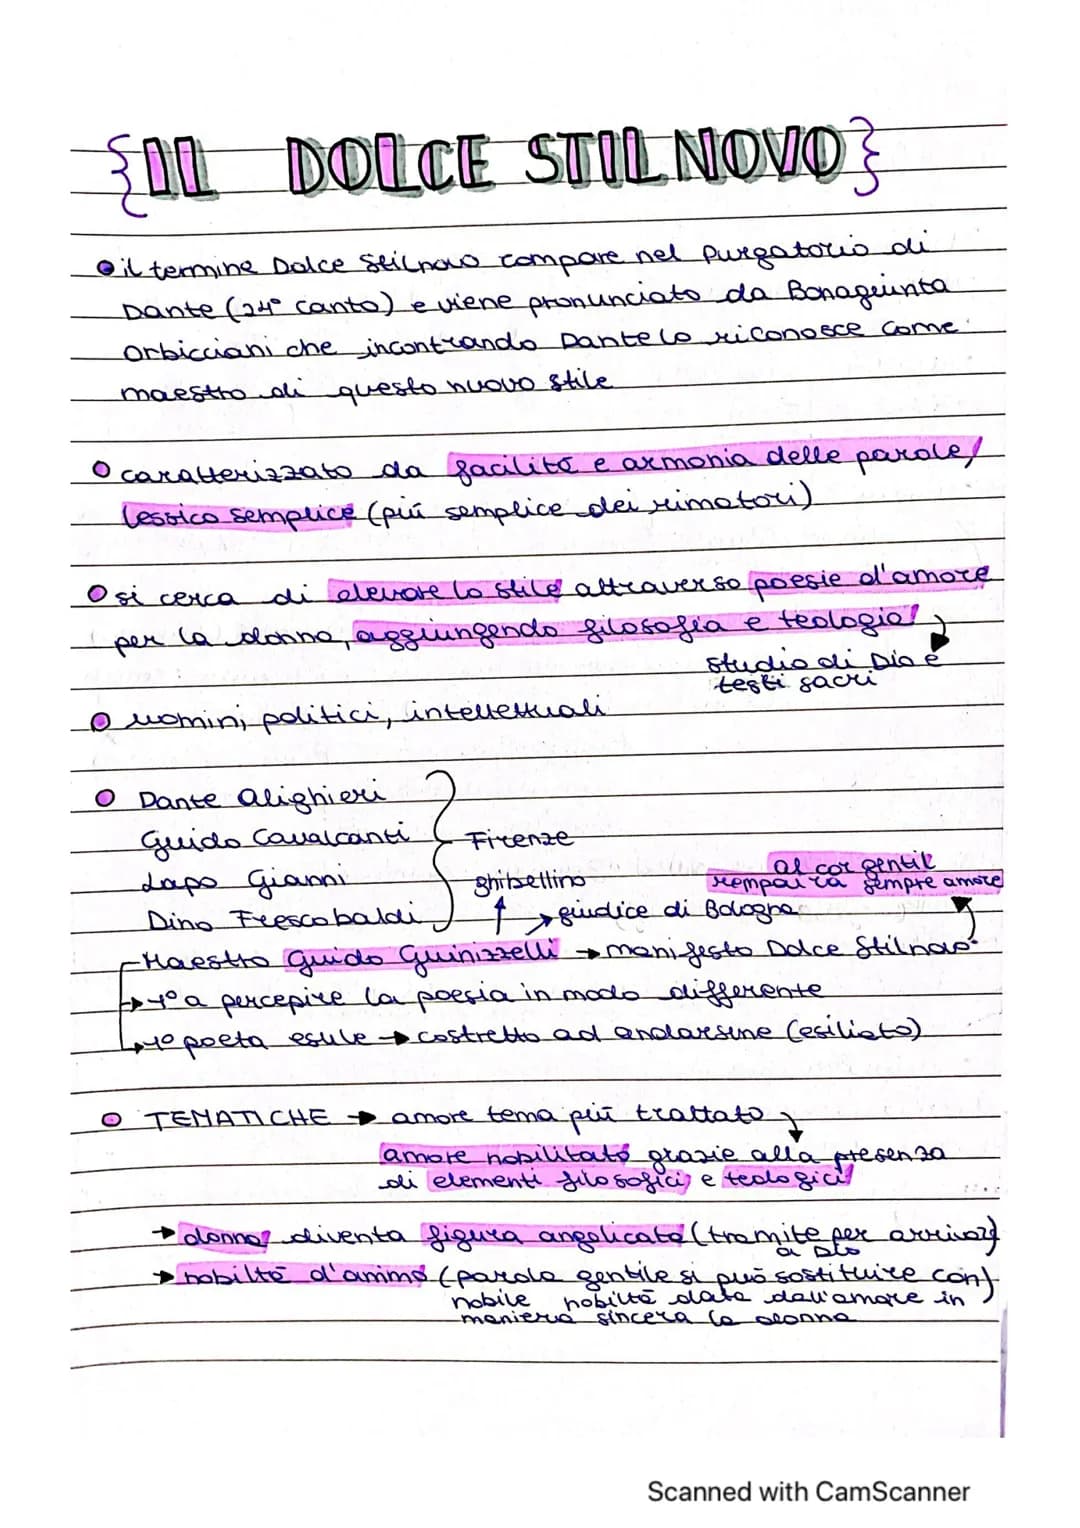 {IL DOLCE STIL NOVO}
il termine Dolce Stilnovo compare nel Purgatorio di
Dante (24° canto) e viene pronunciato da Bonagiunta
Orbicciani che incontrando Dante lo riconosce come
maestro di questo nuovo stile
caratterizzato da facilità e armonia delle parole,
lessico semplice (più semplice dei rimatori)
si cerca di elevare lo stile attraverso poesie d'amore
per la donna, aggiungendo filosofia e teologia
studio di Dio e
testi sacri
uomini politici, intellettuali
Dante Alighieri
Guido Cavalcanti
Firenze
Lapo Gianni
Dino Frescobaldi
ghibellino
al cor gentil
rempaira sempre amore
→ giudice di Bologna
Maestro Guido Guinizzelli → manifesto Dolce Stilnovo
→ 1° a percepire la poesia in modo differente
→ 1° poeta esule → costretto ad andarsene (esiliato)
TEMATICHE → amore tema più trattato
amore nobilitato grazie alla presenza
di elementi filosofici e teologici
→ donna diventa figura angelicata (tramite per arrivare
a Dio)
→ nobiltà d'animo (parola gentile si può sostituire con
nobile nobiltà data dall'amare in
maniera sincera la donna)
Scanned with CamScanner